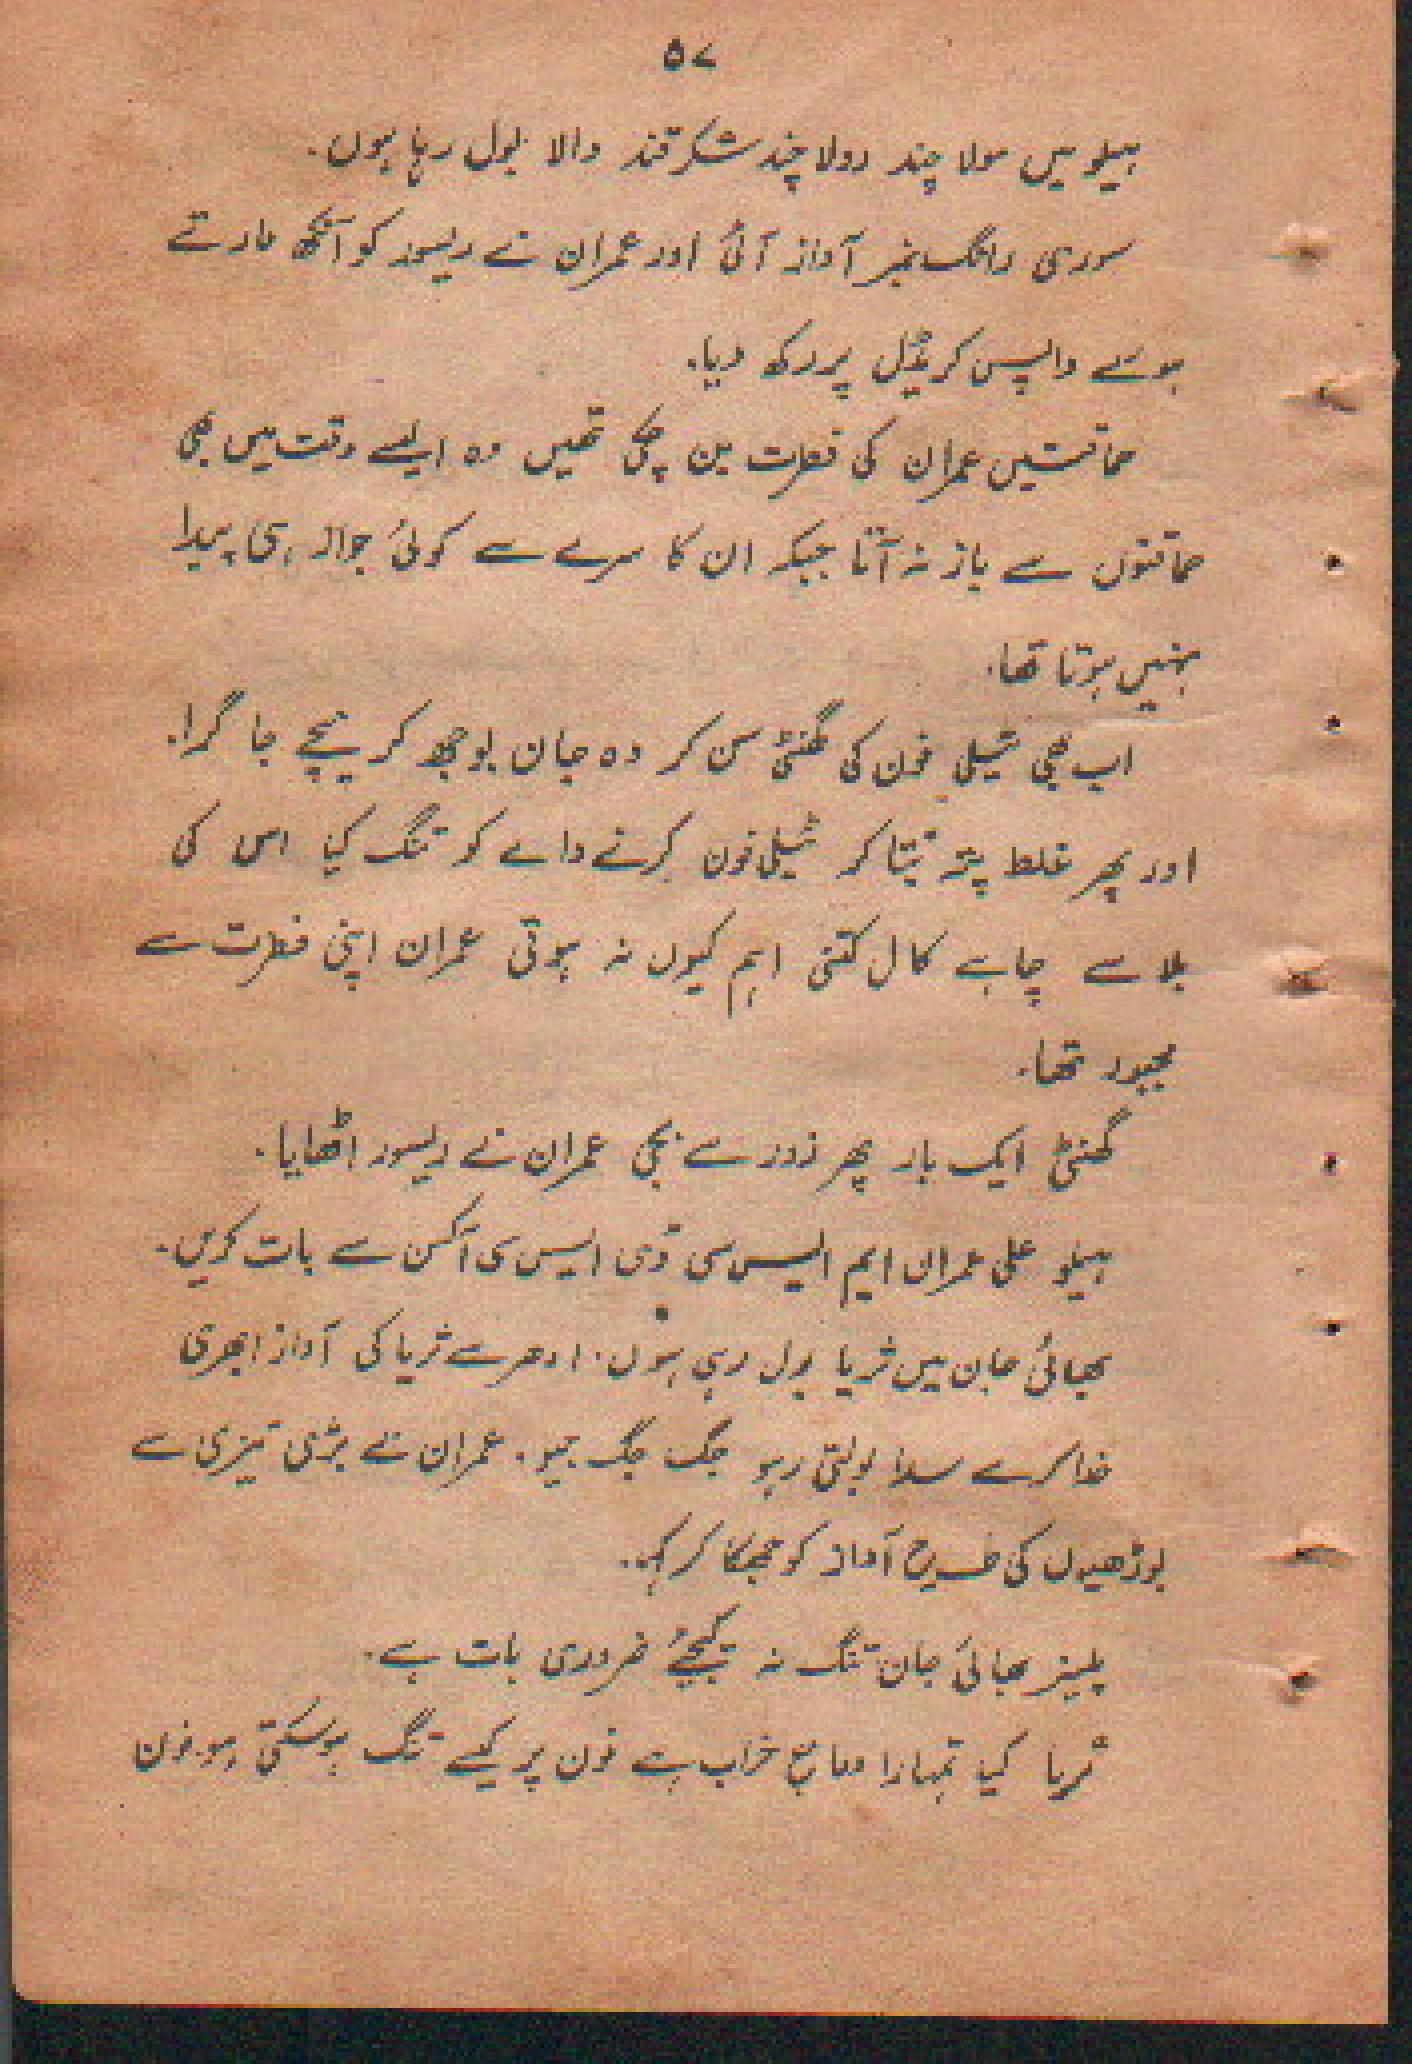 ۵۷
ہیلو میں مولا چند دولا چند شکر قند والا بول رہا ہوں۔
سوری رانگ نمبر آواز آئی اور عمران نے ریسور کو آنکھ مارتے
ہوئے واپس کریڈل پر رکھ دیا۔
حماقتیں عمران کی فطرت بن چکی تھیں وہ ایسے وقت میں بھی
حماقتوں سے باز نہ آتا جبکہ ان کا سرے سے کوئی جواز ہی پیدا
نہیں ہوتا تھا۔
اب بھی ٹیلی فون کی گھنٹی سن کر وہ جان بوجھ کر نیچے جا گرا۔
اور پھر غلط پتہ بتا کر ٹیلی فون کرنے والے کو تنگ کیا اس کی
بلا سے چاہے کال کتنی اہم کیوں نہ ہوتی عمران اپنی فطرت سے
مجبور تھا۔
گھنٹی ایک بار پھر زور سے بجی عمران نے ریسور اٹھایا۔
ہیلو علی عمران ایم ایس سی ڈی ایس سی آکسن سے بات کریں۔
بھائی جان میں ثریا بول رہی ہوں۔ ادھر سے ثریا کی آواز ابھری
خدا کرے سدا بولتی رہو جگ جگ جیو۔ عمران نے بڑی تیزی سے
بوڑھیوں کی طرح آواز کو جھٹکا کر کہا۔
پلیز بھائی جان تنگ نہ کیجئے ضروری بات ہے۔
ثریا کیا تمہارا دماغ خراب ہے فون پر کیسے تنگ ہو سکتی ہو۔ فون